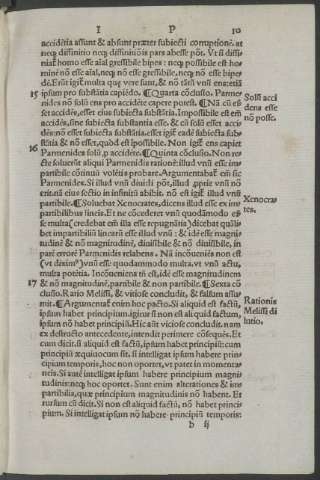 I P 10
accidẽtia assunt & absunt præter subiecti corruptionẽ. at
necꝫ diffinitio necꝫ diffinitiõis pars abesse põt. Vt si diffi-
niať homo esse aïal gressibile bipes: necꝫ possibile est ho
minẽ nõ esse aïal, necꝫ nõ esse gressibile, necꝫ nõ esse bipe
dẽ. Erũt igiť multa quę vere sunt, & nõ tãtũ vnũ: etiã si
15 ipsum pro substãtia capiẽdo. ¶Quarta cõclusio. Parme-
nides nõ solũ ens pro accidẽte capere potest. ¶Nã cũ es-
set accidẽs, esset eius subiecta substãtia. Impossibile est eñ
accidẽs, sine subiecta substantia esse. & cũ solũ esset acci-
dẽs: nõ esset subiecta substãtia. esset igiť eadẽ subiecta sub-
stãtia & nõ esset, quod est ĩpossibile. Non igiť ens capiet
16 Parmenides solũ p accidẽte. ¶Quinta cõclusio. Non re-
cte soluerũt aliqui Parmenidis rationẽ: illud vnũ esse im-
partibile cõtinuũ volẽtis probare. Argumentabať eñ sic
Parmenides. Si illud vnũ diuidi põt, illud pprie vnũ nõ
erit: aũ eius sectio in infinitũ abibit. nõ est igiť illud vnũ
partibile. ¶Soluebat Xenocrates, dicens illud esse ex im-
partibilibus lineis. Et ne cõcederet vnũ quodãmodo es-
se multa (credebat eñ illa esse repugnãtia) dicebat quãli-
bet impartibiliũ linearũ esse illud vnũ: & id esse magni-
tudinẽ & nõ magnitudinẽ, diuisibile & nõ diuisibile, in
parẽ errorẽ Parmenidis relabens. Nã incõueniẽs non est
(vt diximꝰ) vnũ esse quodammodo multa. vt vnũ actu,
multa potẽtia. Incõueniens tñ est, idẽ esse magnitudinem
17 & nõ magnitudinẽ, partibile & non partibile. ¶Sexta cõ
clusio. Ratio Melissi, & vitiose concludit, & falsum assu-
mit. ¶Argumentať enim hoc pacto. Si aliquid est factũ,
ipsum habet principium. igitur si non est aliquid factum,
ipsum nõ habet principiũ. Hic aũt vitiose concludit. nam
ex destructo antecedente, intendit perimere cõsequẽs. Et
cum dicit. si aliquid est factũ, ipsum habet principiũ: cum
principiũ æquiuocum sit. si intelligat ipsum habere prin-
cipium temporis, hoc non oportet, vt patet in momenta-
neis. Si vãte intelligat ipsum habere principium magni
tudinis: necꝫ hoc oportet. Sunt enim alterationes & im-
partibilia, quæ principium magnitudinis nõ habent. Et
rursum cũ dicit. Si non est aliquid factũ, nõ habet princi-
pium. Si intelligat ipsum nõ habere principiũ temporis:
b ij
Solũ acci
dens esse
nõ posse.
Xenocra-
tes.
Rationis
Melissi di
lutio.